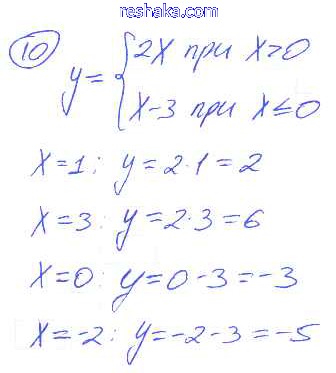 reshaka.com
10 y = { 2x при x>0
x-3 при x≤0
x=1: y=2·1=2
x=3: y=2·3=6
x=0: y=0-3=-3
x=-2: y=-2-3=-5